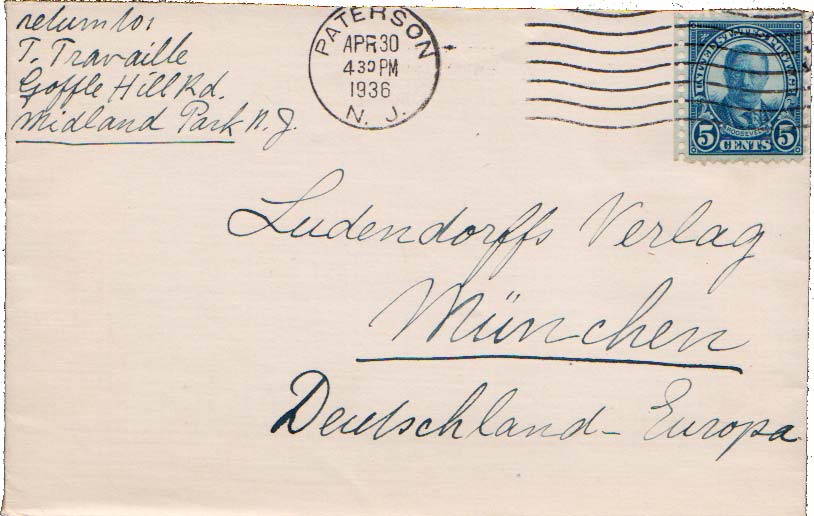 return to:
T. Travaille
Goffle Hill Rd.
Midland Park N.J.
PATERSON
APR 30
4 30 PM
1936
N. J.
UNITED STATES POSTAGE
ROOSEVELT
5 CENTS 5
Ludendorffs Verlag
München
Deutschland - Europa